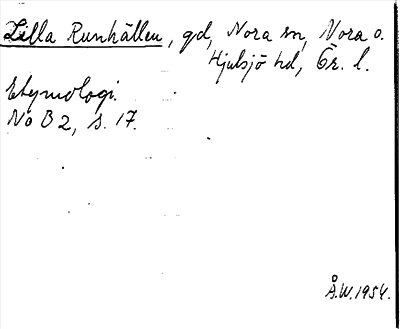 Lilla Runhällen, gd, Nora sn, Nora o.
Hjulsjö hd, Ör. l.
Etymologi.
No B 2, s. 17.
Å.W. 1954.